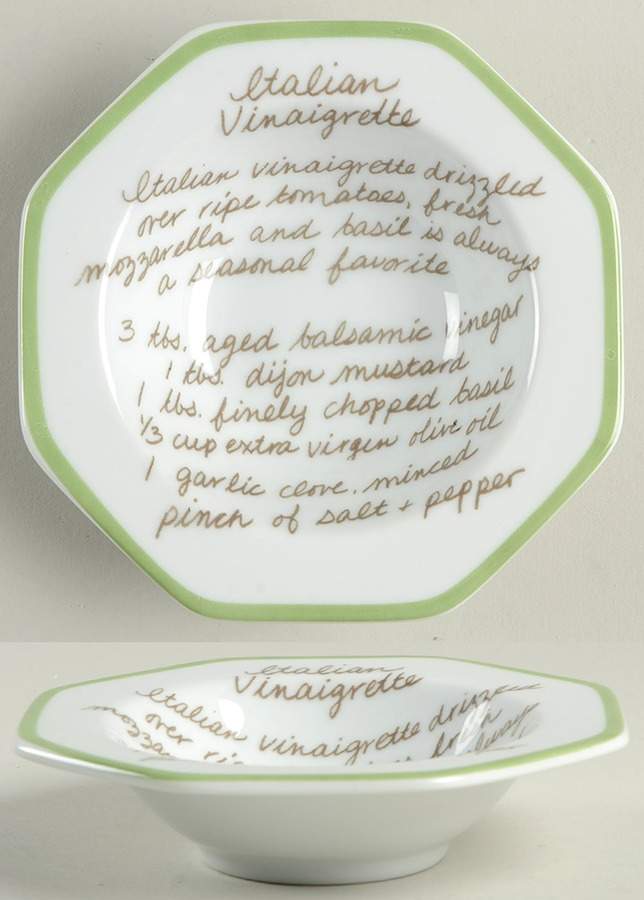 Italian
Vinaigrette
Italian vinaigrette drizzled
over ripe tomatoes, fresh
mozzarella and basil is always
a seasonal favorite
3 tbs. aged balsamic vinegar
1 tbs. dijon mustard
1 tbs. finely chopped basil
1/3 cup extra virgin olive oil
1 garlic clove, minced
pinch of salt + pepper
Italian
Vinaigrette
Italian vinaigrette drizzled
over fresh
always